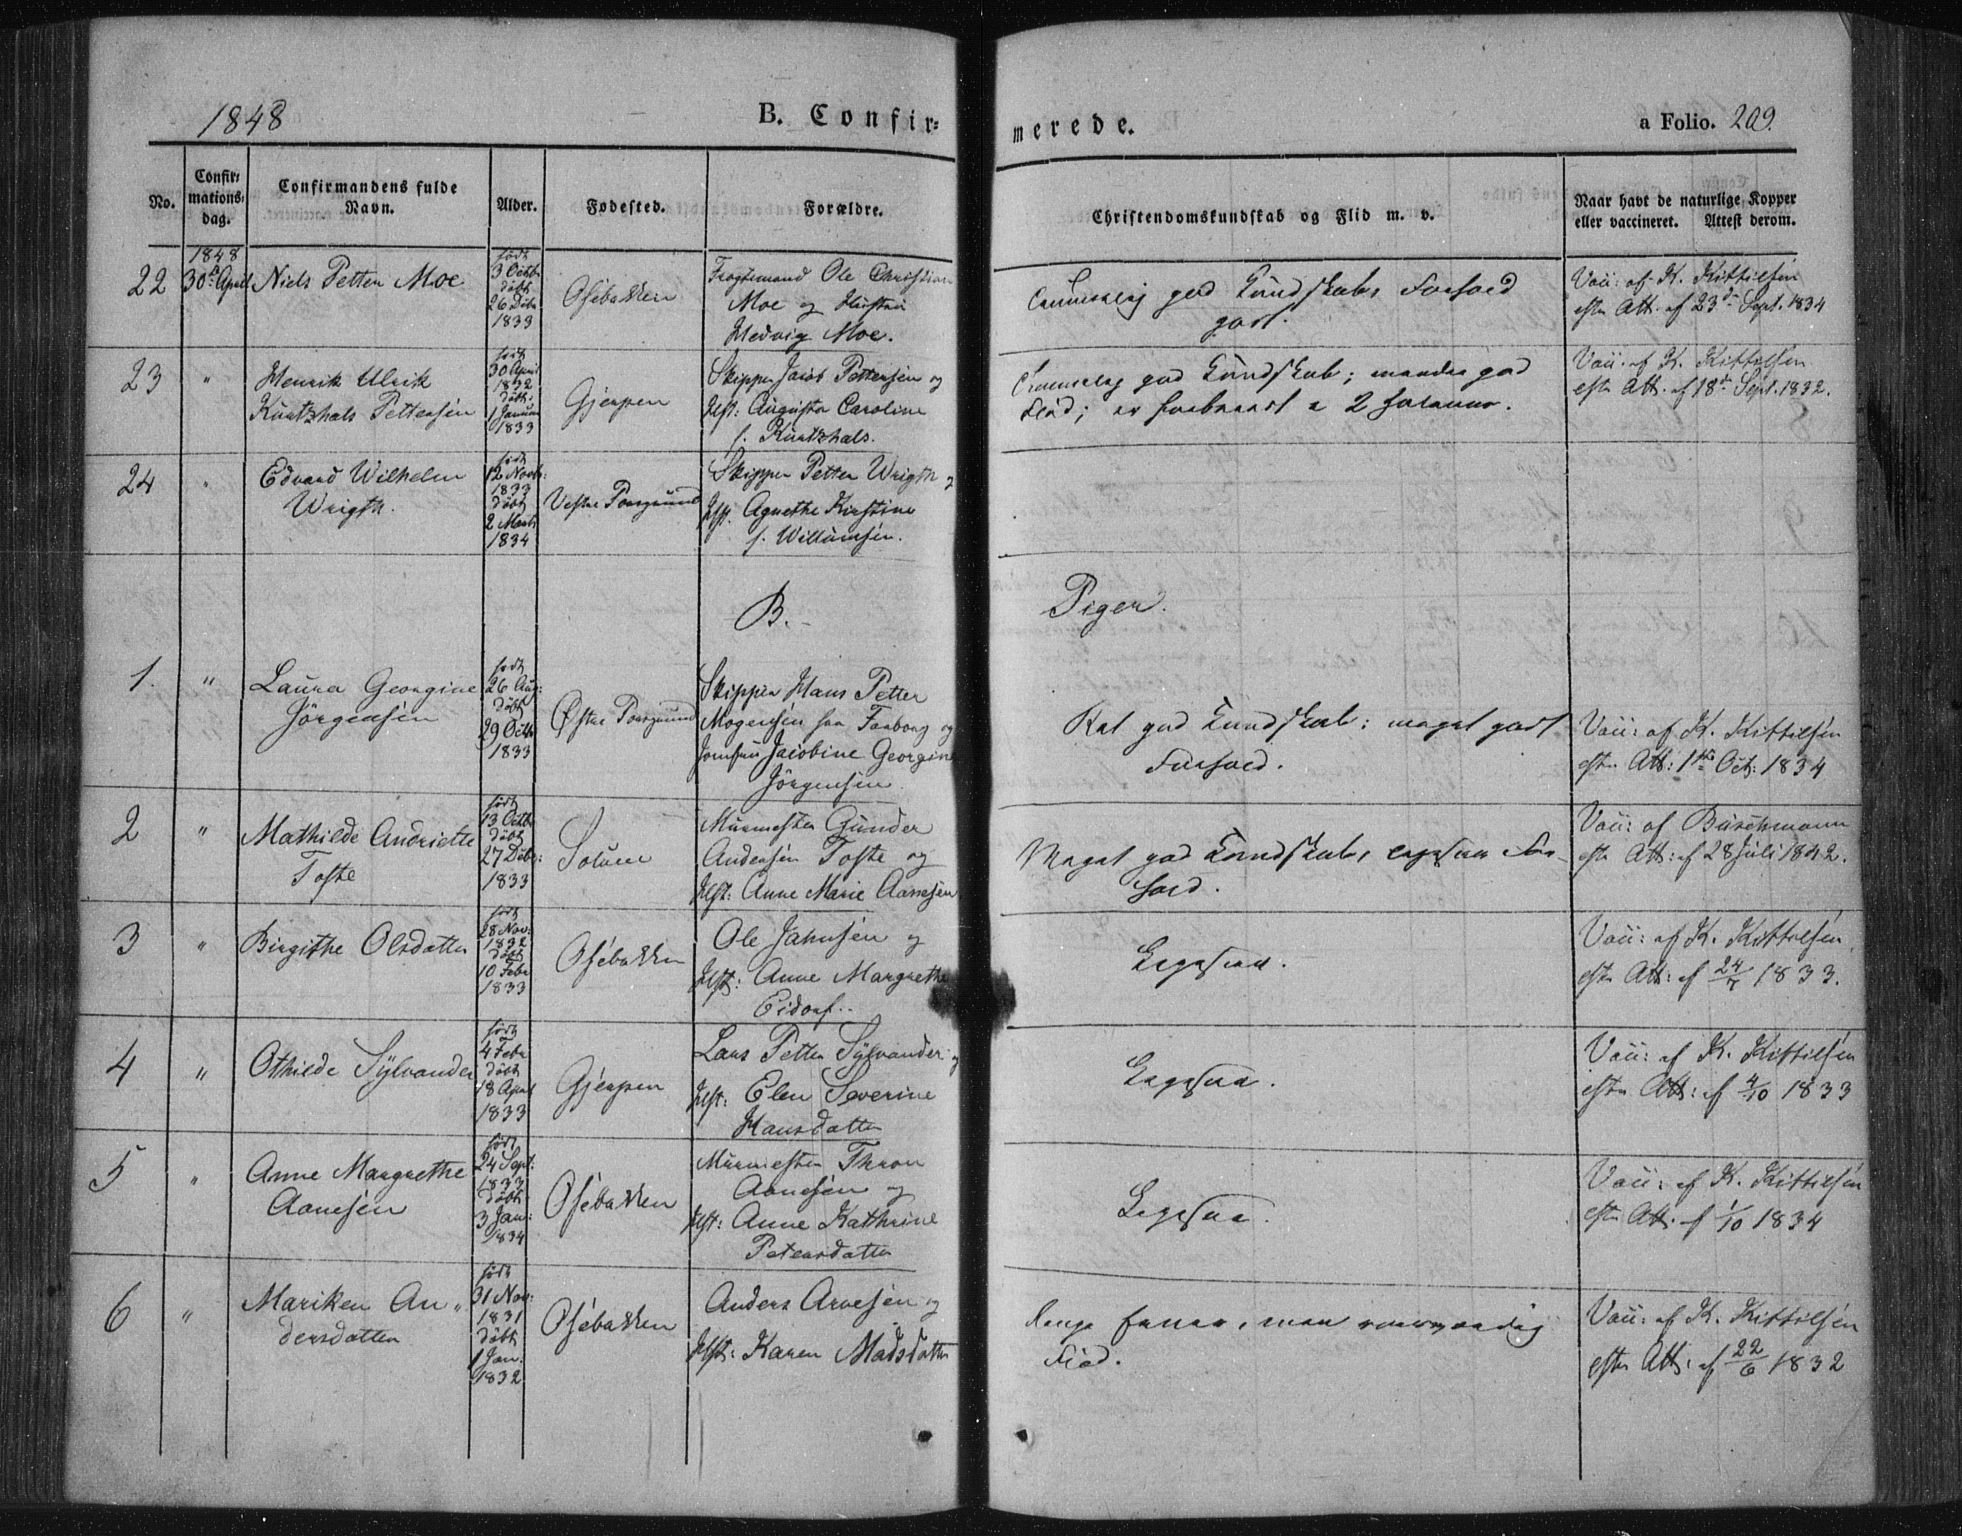 1848
B. Confir-
merede.
a Folio. 209.
No.
Confir-
mations-
dag.
Confirmandens fulde
Navn.
Alder.
Fødested.
Forældre.
Christendomskundskab og Flid m. v.
Naar havt de naturlige Kopper
eller vaccineret. Attest derom.
1848
22 30te April Niels Petter Moe
født
3 Octb
döbt
26 Decbr
1833
Osebakken
Fragtemand Ole Christian
Moe og Hustru
Hedvig Moe.
god Kundskab, Forhold
godt.
Vacc: af K. Kittilsen
efter Att. af 23de Sept. 1834
23 "
Henrik Ulrik
Kurtzhals Pettersen
født
30 April
1832
döbt
1 Januar
1833
Gjerpen
Skipper Jacob Pettersen og
Hst: Augusta Caroline
f. Kurtzhals.
god Kundskab; mindre god
Flid; er
Vacc: af K. Kittilsen
efter Att. af 18de Sept. 1832.
24 "
Edvard Wilhelm
Wrigth.
født
12 Novb:
1833
döbt
2 Marts
1834
Vestre Porsgrund
Skipper Petter Wrigth og
Hst. Agnethe Kirstine
f. Willumsen.
B.
Piger.
1. "
Laura Georgine
Jörgensen
født
26 Aug:
döbt
29 Octb
1833
Østre Porsgrund
Skipper Hans Petter
Mogensen fra Faaborg og
Jomfru Jacobine Georgine
Jörgensen
Ret god Kundskab; meget godt
Forhold.
Vacc: af K. Kittilsen
efter Att: 1ste Oct: 1834
2 "
Mathilde Andriette
Tofte
født
13 Octb
döbt
27 Decbr:
1833
Solum
Murmester Gunder
Andersen Tofte og
Hst: Anne Marie Aanesen
Meget god Kundskab, ligesaa For-
hold.
Vacc: af Buschmann
efter Att: af 28 Juli 1842.
3 "
Birgithe Olsdatter
født
28 Nov:
1832
döbt
10 Febr
1833
Osebakken
Ole Jahnsen og
Hst: Anne Margrethe
Eidorf..
Ligesaa.
Vacc: af K. Kittilsen
efter Att: af 24/7 1833.
4 "
Othilde Sylvander
født
4 Febr
döbt
18 April
1833
Gjerpen
Lars Petter Sylvander og
Hst: Elen Severine
Hansdatter
Ligesaa.
Vacc: af K. Kittilsen
efter Att: af 4/10 1833
5 "
Anne Margrethe
Aanesen
født
24 Sept:
1833
döbt
3 Jan:
1834
Osebakken
Murmester Thron
Aanesen og
Hst: Anne Kathrine
Petersdatter
Ligesaa.
Vacc: af K. Kittilsen
efter Att. af 1/10 1834
6 "
Mariken An„
dersdatter
født
31 Nov:
1831
döbt
1 Jan:
1832
Osebakken
Anders Arvesen og
Hst: Karen Madsdatter
Flid.
Vacc: af K. Kittilsen
efter Att: af 22/6 1832